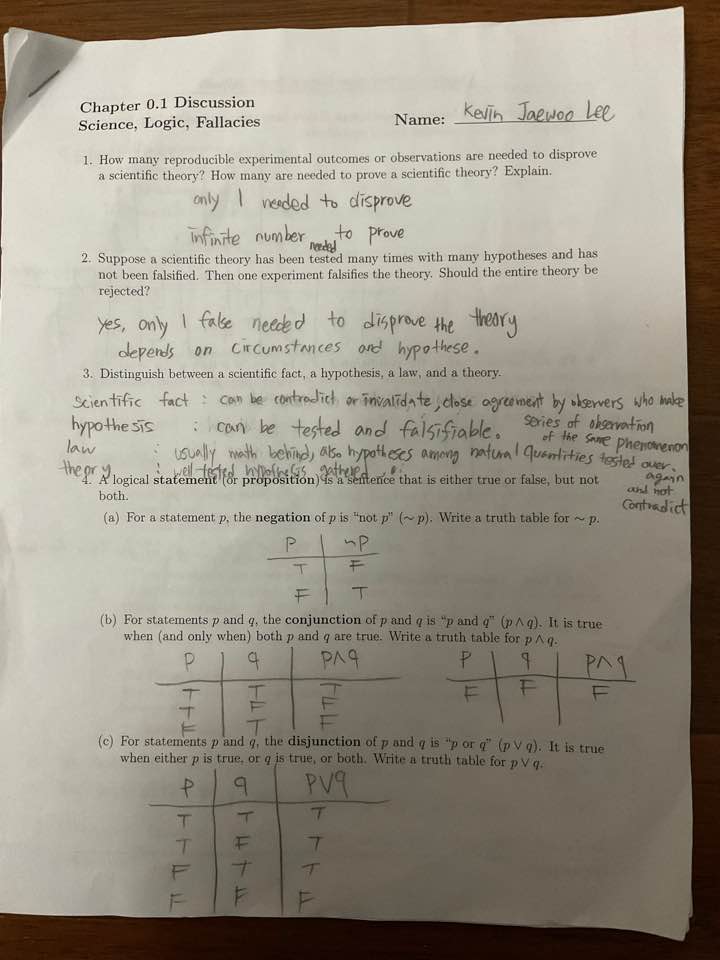 Chapter 0.1 Discussion
Science, Logic, Fallacies
Name: Kevin Jaewoo Lee
1. How many reproducible experimental outcomes or observations are needed to disprove
a scientific theory? How many are needed to prove a scientific theory? Explain.
only 1 needed to disprove
infinite number needed to prove
2. Suppose a scientific theory has been tested many times with many hypotheses and has
not been falsified. Then one experiment falsifies the theory. Should the entire theory be
rejected?
yes, only 1 false needed to disprove the theory
depends on circumstances and hypothese.
3. Distinguish between a scientific fact, a hypothesis, a law, and a theory.
scientific fact : can be contradict or invalidate, close agreement by observers who make
series of observation
of the same phenomenon
hypothesis : can be tested and falsifiable.
law : usually math behind, also hypotheses among natural quantities tested over.
again
and not
contradict
theory : well-tested hypothesis gathered
4. A logical statement (or proposition) is a sentence that is either true or false, but not
both.
(a) For a statement p, the negation of p is "not p" (∼ p). Write a truth table for ∼ p.
P ¬P
T F
F T
(b) For statements p and q, the conjunction of p and q is "p and q" (p ∧ q). It is true
when (and only when) both p and q are true. Write a truth table for p ∧ q.
P q P∧q
T T T
T F F
F T F
P q P∧q
F F F
(c) For statements p and q, the disjunction of p and q is "p or q" (p ∨ q). It is true
when either p is true, or q is true, or both. Write a truth table for p ∨ q.
P q P∨q
T T T
T F T
F T T
F F F